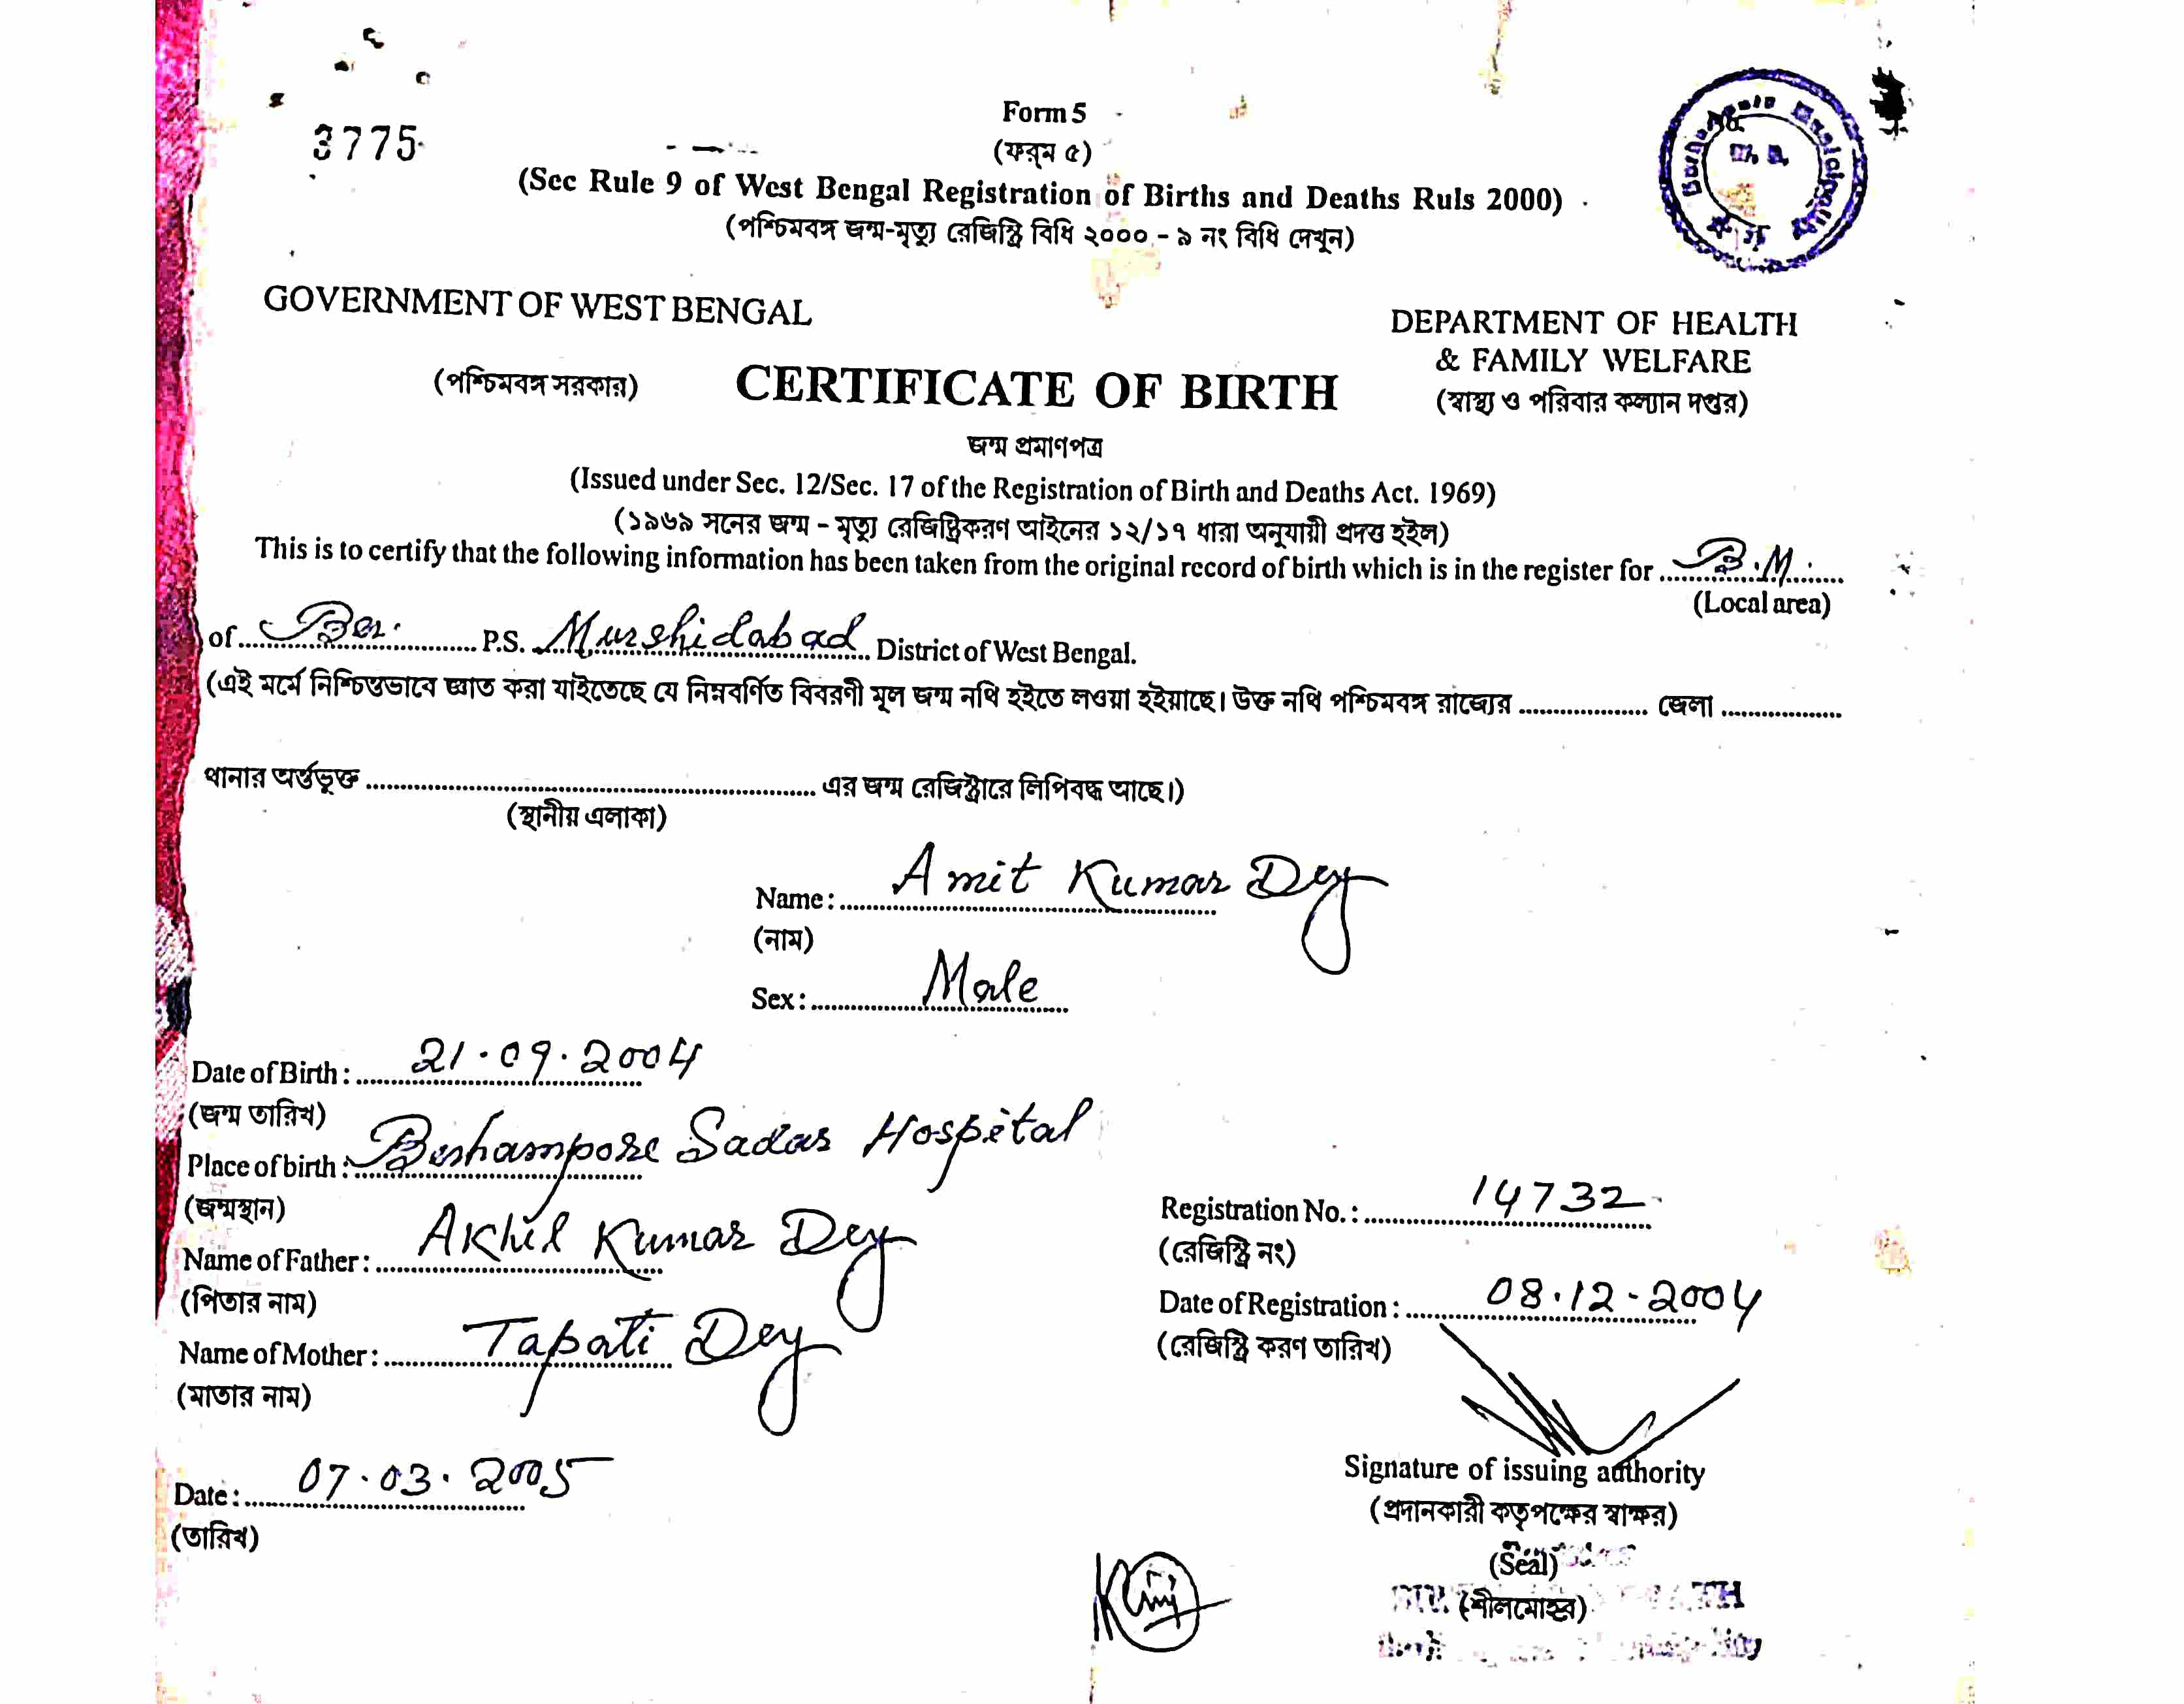 3775
Form 5
(ফর্ম ৫)
(See Rule 9 of West Bengal Registration of Births and Deaths Ruls 2000)
(পশ্চিমবঙ্গ জন্ম-মৃত্যু রেজিস্ট্রি বিধি ২০০০ - ৯ নং বিধি দেখুন)
GOVERNMENT OF WEST BENGAL
(পশ্চিমবঙ্গ সরকার)
DEPARTMENT OF HEALTH
& FAMILY WELFARE
(স্বাস্থ্য ও পরিবার কল্যান দপ্তর)
CERTIFICATE OF BIRTH
জন্ম প্রমাণপত্র
(Issued under Sec. 12/Sec. 17 of the Registration of Birth and Deaths Act. 1969)
(১৯৬৯ সনের জন্ম - মৃত্যু রেজিষ্ট্রিকরণ আইনের ১২/১৭ ধারা অনুযায়ী প্রদত্ত হইল)
This is to certify that the following information has been taken from the original record of birth which is in the register for B.M.
(Local area)
of Ber. P.S. Murshidabad District of West Bengal.
(এই মর্মে নিশ্চিন্তভাবে জ্ঞাত করা যাইতেছে যে নিম্নবর্ণিত বিবরণী মূল জন্ম নথি হইতে লওয়া হইয়াছে। উক্ত নথি পশ্চিমবঙ্গ রাজ্যের .................. জেলা ..................
থানার অর্ন্তভূক্ত .................. এর জন্ম রেজিস্ট্রারে লিপিবদ্ধ আছে।)
(স্থানীয় এলাকা)
Name: Amit Kumar Dey
(নাম)
Sex: Male
Date of Birth: 21.09.2004
(জন্ম তারিখ)
Place of birth: Berhampore Sadar Hospital
(জন্মস্থান)
Name of Father: Akhil Kumar Dey
(পিতার নাম)
Name of Mother: Tapati Dey
(মাতার নাম)
Date: 07.03.2005
(তারিখ)
Registration No.: 14732
(রেজিস্ট্রি নং)
Date of Registration: 08.12-2004
(রেজিস্ট্রি করণ তারিখ)
Signature of issuing authority
(প্রদানকারী কতৃপক্ষের স্বাক্ষর)
(Seal)
(শীলমোহর)